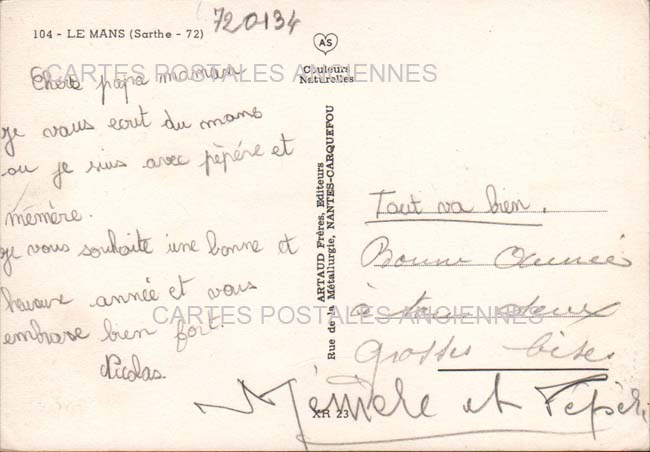 720134
104 - LE MANS (Sarthe - 72)
AS
Couleurs
Naturelles
CARTES POSTALES ANCIENNES
Chers papa maman
je vous ecrit du mans
ou je suis avec pèpére et
mémère.
je vous souhaite une bonne et
heureuse année et vous
embrase bien fort.
Nicolas.
ARTAUD Frères, Editeurs
Rue de la Métallurgie, NANTES-CARQUEFOU
Tout va bien.
Bonne Année
à tous deux
Grosses bises
Mémère et Pépère
CARTES POSTALES ANCIENNES
XR 23